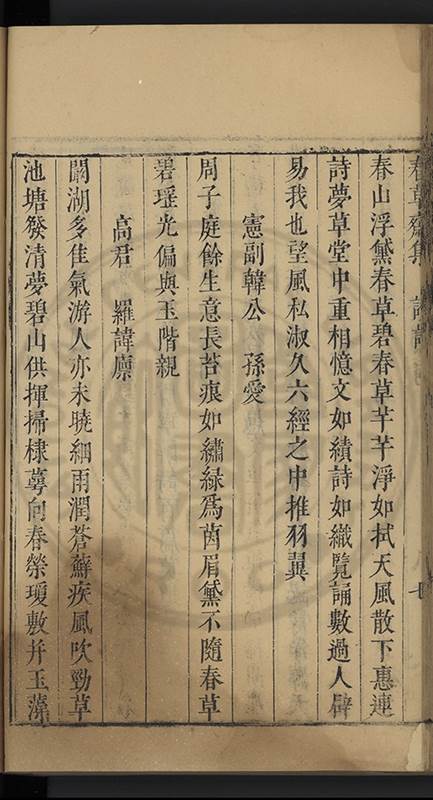 春草齋集
春山浮黛春草碧春草芊芊淨如拭天風散下惠連
詩夢草堂中重相憶文如績詩如織覽誦數過人辟
易我也望風私淑久六經之中推羽翼
憲副韓公 孫愛
周子庭餘生意長苔痕如繡綠爲茵眉黛不隨春草
碧瑤光偏與玉階親
高君 羅諱廪
閬湖多佳氣游人亦未曉細雨潤蒼蘚疾風吹勁草
池塘發清夢碧山供揮掃棣萼向春榮瓊敷并玉藻